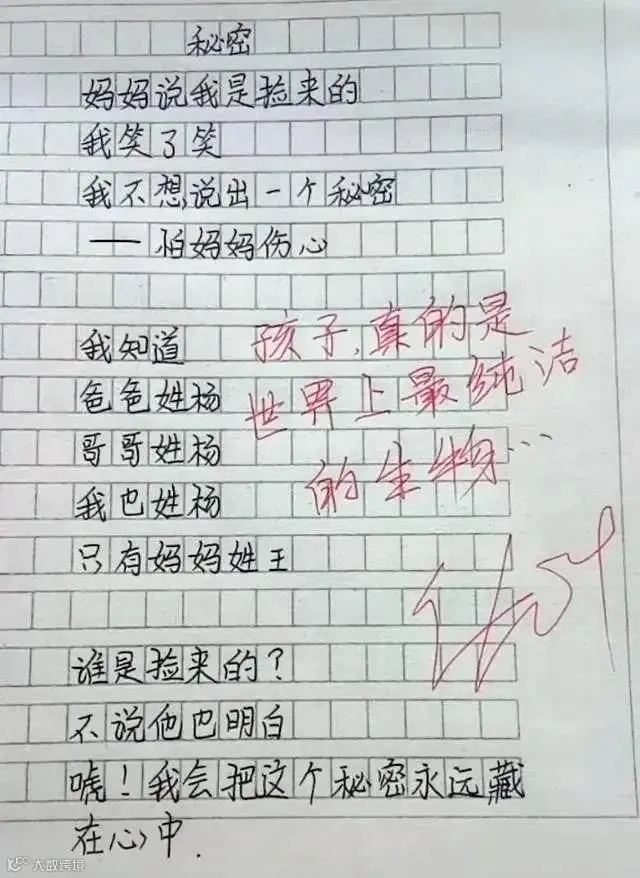 秘密
妈妈说我是捡来的
我笑了笑
我不想说出一个秘密
——怕妈妈伤心
我知道
爸爸姓杨
哥哥姓杨
我也姓杨
只有妈妈姓王
孩子,真的是
世界上最纯洁
的生物…
谁是捡来的?
不说他也明白
唬!我会把这个秘密永远藏
在心中.
大数跨境